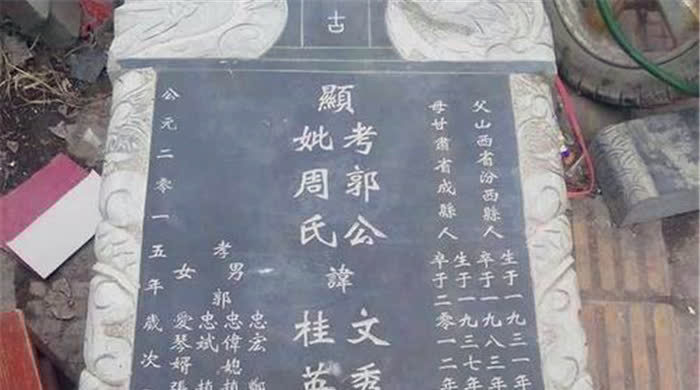 古
父山西省汾西縣人
生于一九三一年
卒于一九八三年
母甘肅省成縣人
生于一九三七年
卒于二零一二年
顯
考郭公
妣周氏
諱
文秀
桂英
孝
男郭
女
忠宏
忠偉媳
忠斌
愛琴婿張
公元二零一五年歲次